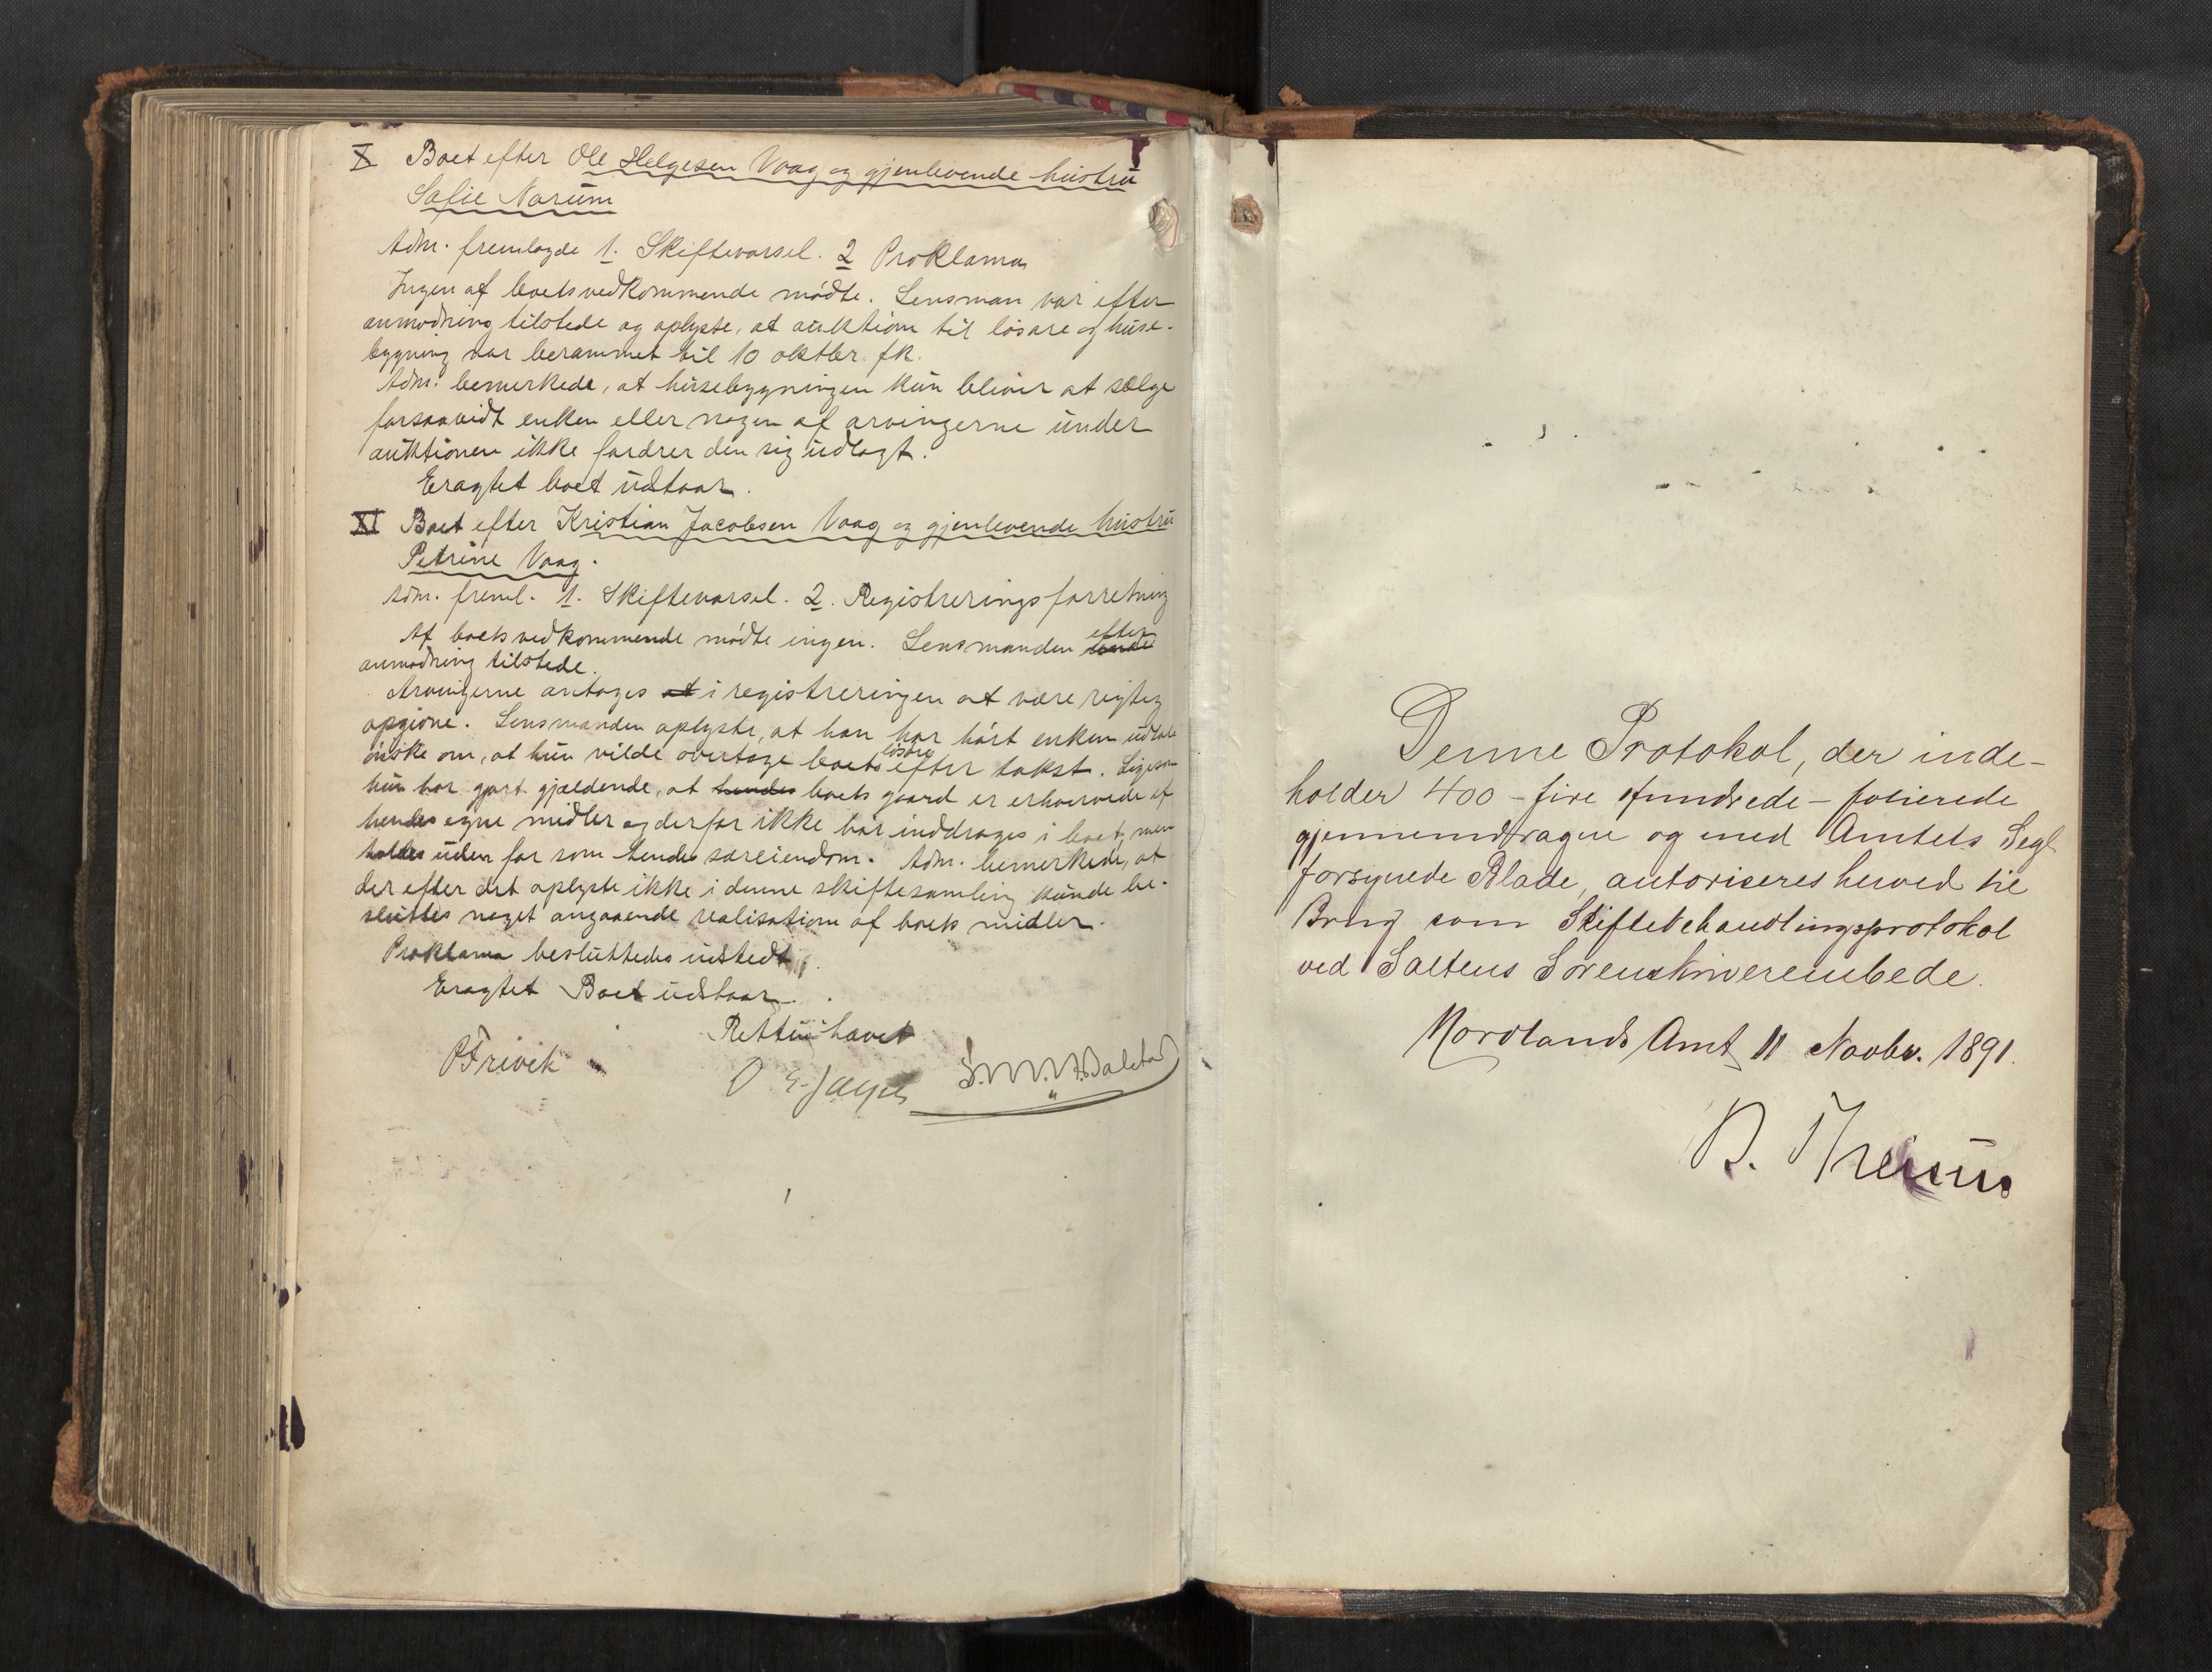 X Boet efter Ole Helgesen Vaag og gjenlevende hustru
Safie Narum
Adm. fremlagde 1. Skiftevarsel. 2 Proklama
Ingen af boets vedkommende mødte. Lensman var efter
anmodning tilstede og oplyste, at auktion til løsøre og huse-
bygning var berammet til 10 oktbr. fk.
Adm. bemerkede, at husebygningen kun bliver at sælge
forsaavidt enken eller nogen af arvingerne under
auktionen ikke fordrer den sig udlagt.
Eragtet boet udstaar.
XI Boet efter Kristian Jacobsen Vaag og gjenlevende hustru
Petrine Vaag.
Adm. freml. 1. Skiftevarsel. 2. Registreringsforretning
Af boets vedkommende mødte ingen. Lensmanden efter
anmodning tilstede.
Arvingerne antages at i registreringen at være rigtig
opgivne. Lensmanden oplyste, at han har hørt enken udtale
ønske om, at hun vilde overtage boets løsøre efter takst. Ligesom
hun har gjort gjældende, at hendes boets gaard er erhvervede af
hendes egne midler og derfor ikke bør inddrages i boet, men
holdes uden for som hendes særeiendom. Adm. bemerkede, at
der efter det oplyste ikke i denne skiftesamling kunde be-
sluttes noget angaaende realisation af boets midler.
Proklama besluttedes udstedt.
Eragtet Boet udstaar.
Retten hævet
Denne Protokol, der inde-
holder 400 - fire Hundrede - folierede
gjennemdragne og med Amtets Segl
forsynede Blade, autoriseres herved til
Brug som Skiftebehandlingsprotokol
ved Saltens Sorenskriverembede.
Nordlands Amt 11 Novbr. 1891.